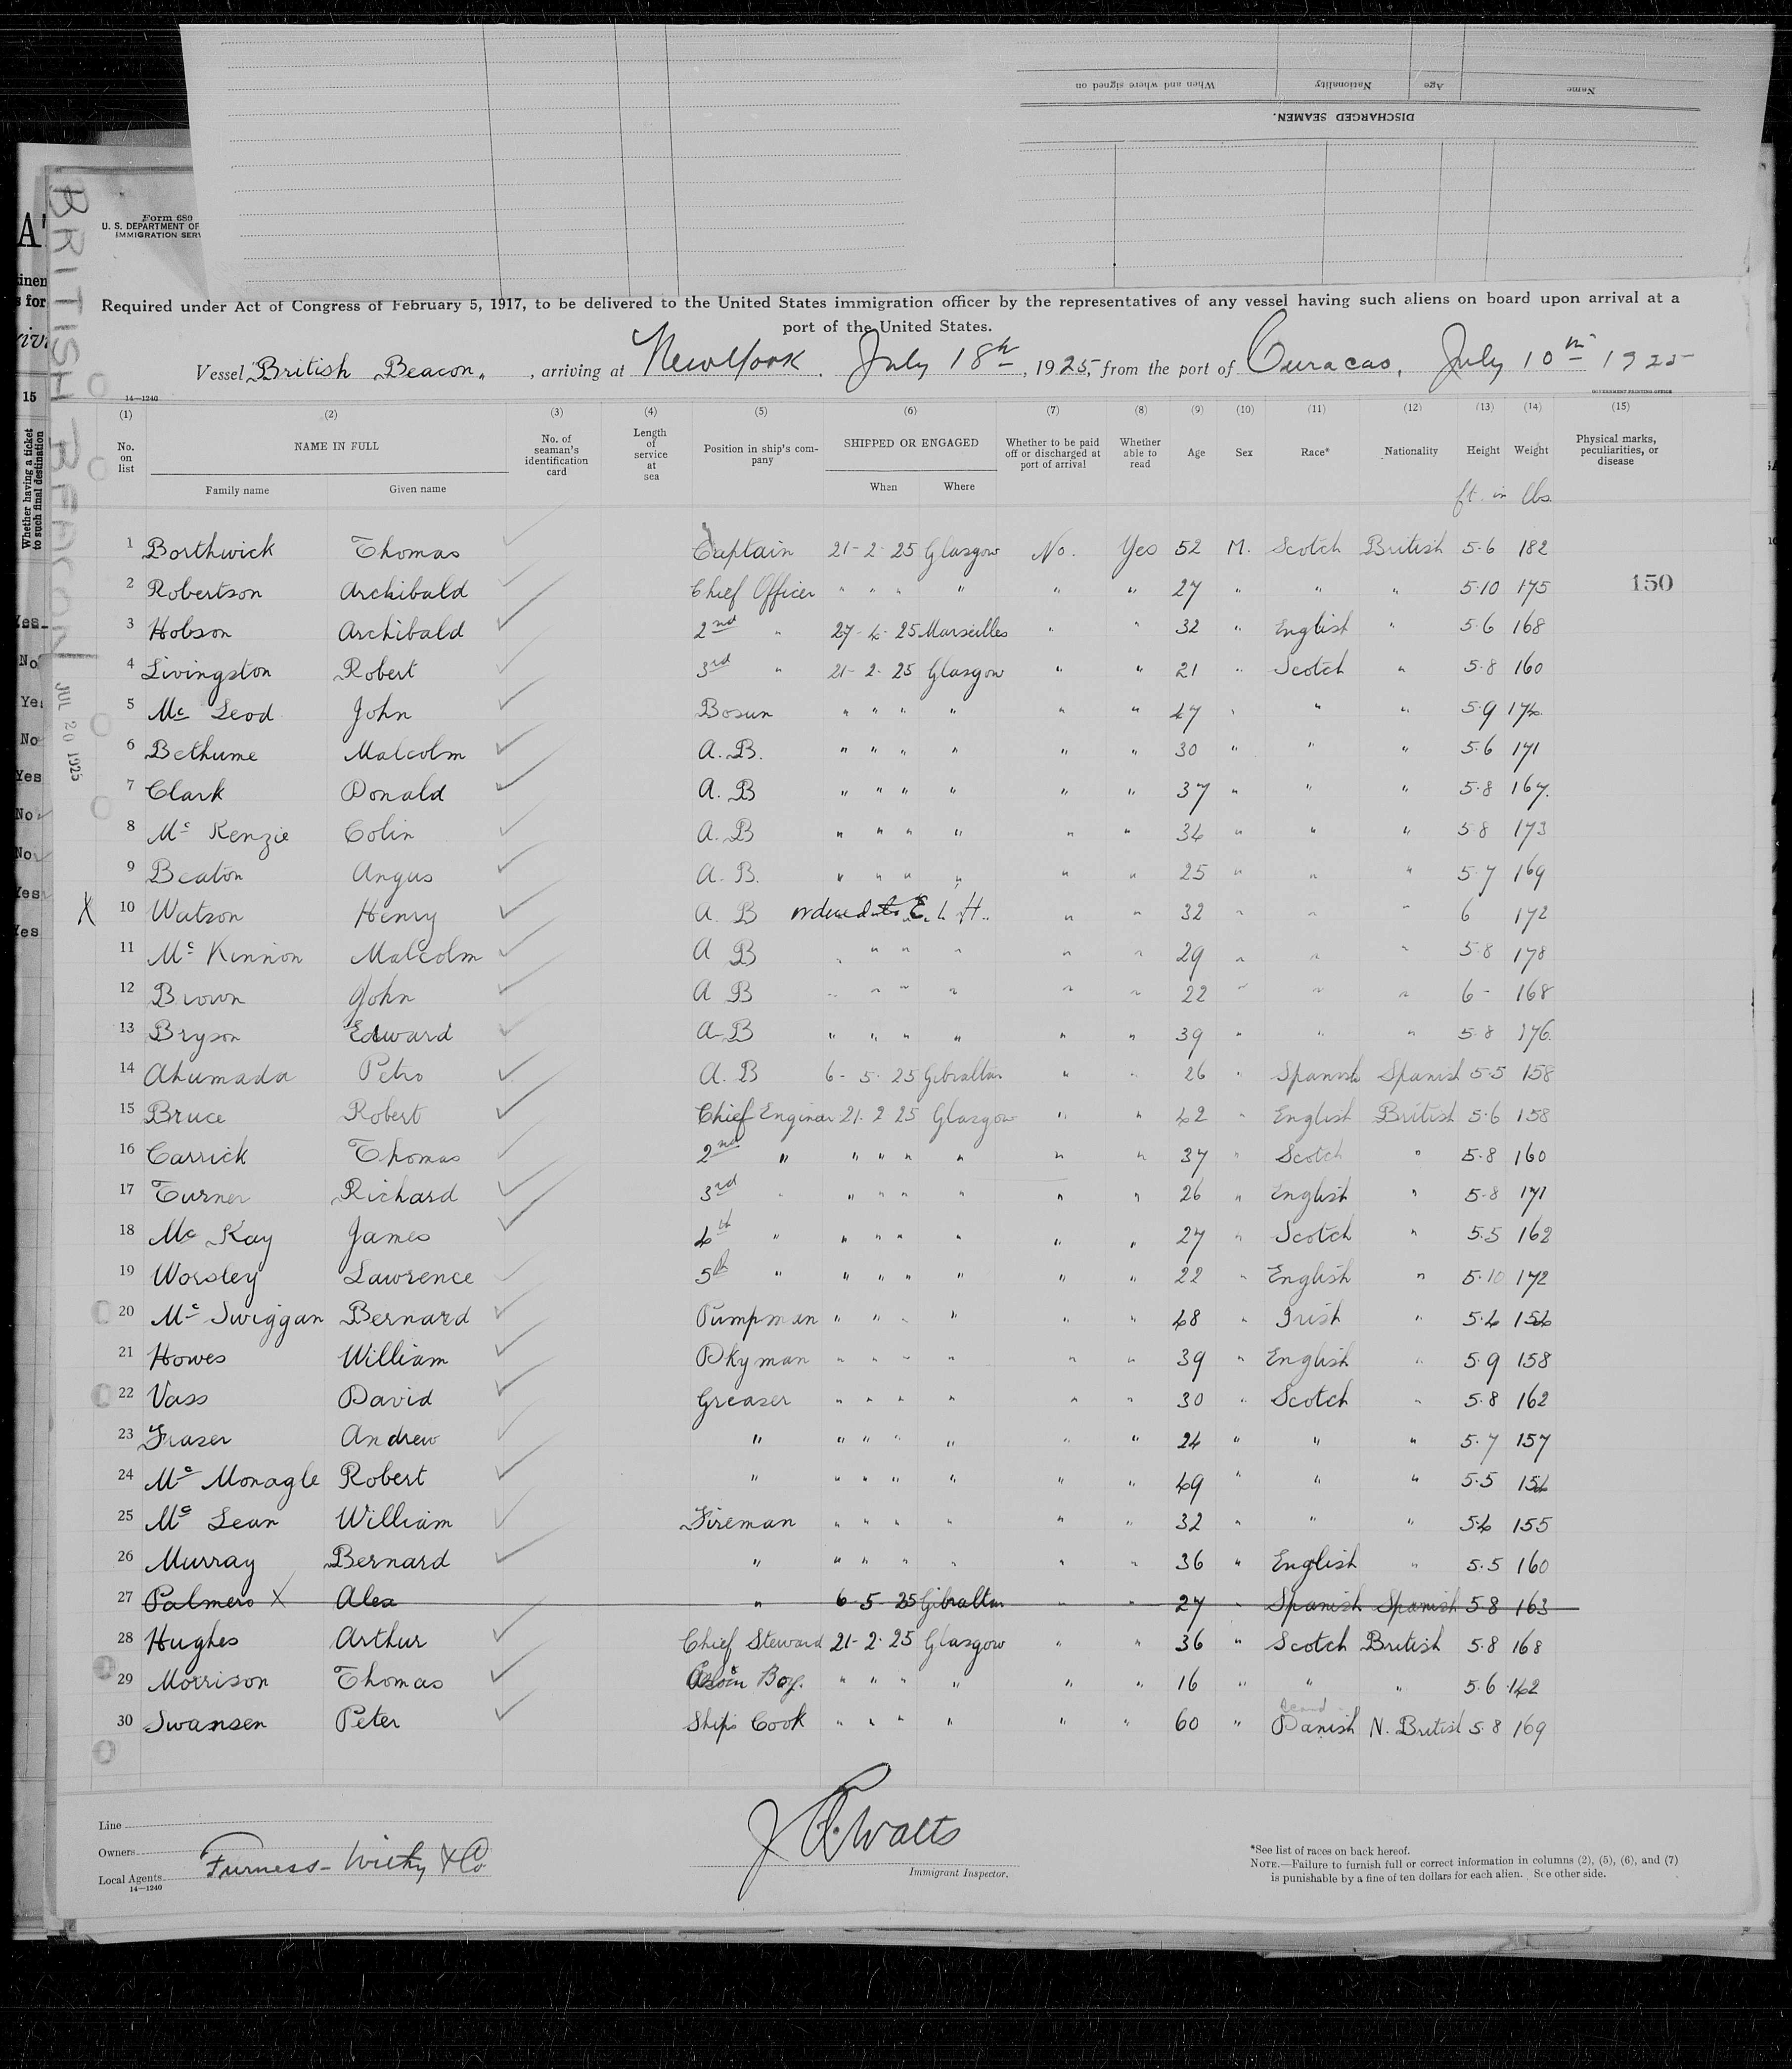 When and where signed on Nationality Age Name
DISCHARGED SEAMEN.
Form 680
U. S. DEPARTMENT OF
IMMIGRATION SERV
BRITISH BEACON
JUL 20 1925
Required under Act of Congress of February 5, 1917, to be delivered to the United States immigration officer by the representatives of any vessel having such aliens on board upon arrival at a
port of the United States.
Vessel British Beacon, , arriving at New York. July 18th, 1925, from the port of Curacao, July 10th 1925
14—1240 GOVERNMENT PRINTING OFFICE
(1) (2) (3) (4) (5) (6) (7) (8) (9) (10) (11) (12) (13) (14) (15)
No. on list NAME IN FULL No. of seaman's identification card Length of service at sea Position in ship's company SHIPPED OR ENGAGED Whether to be paid off or discharged at port of arrival Whether able to read Age Sex Race* Nationality Height Weight Physical marks, peculiarities, or disease
Family name Given name When Where ft. in lbs
1 Borthwick Thomas Captain 21-2-25 Glasgow No. Yes 52 M. Scotch British 5.6 182
2 Robertson Archibald Chief Officer " " " " " " 27 " " " 5.10 175 150
3 Hobson Archibald 2nd " 27-4-25 Marseilles " " 32 " English " 5.6 168
4 Livingston Robert 3rd " 21-2-25 Glasgow " " 21 " Scotch " 5.8 160
5 Mc Leod John Bosun " " " " " " 47 " " " 5.9 174
6 Bethume Malcolm A.B. " " " " " " 30 " " " 5.6 171
7 Clark Donald A.B " " " " " " 37 " " " 5.8 167.
8 Mc Kenzie Colin A.B " " " " " " 34 " " " 5.8 173
9 Beaton Angus A.B. " " " " " " 25 " " " 5.7 169
X 10 Watson Henry A B " " 32 " " " 6 172
11 Mc Kinnon Malcolm A B " " " " " " 29 " " " 5.8 178
12 Brown John A B " " " " " " 22 " " " 6- 168
13 Bryson Edward A-B " " " " " " 39 " " " 5.8 176.
14 Ahumada Petro A.B 6-5-25 Gibraltar " " 26 " Spanish Spanish 5.5 158
15 Bruce Robert Chief Engineer 21-2 25 Glasgow " " 42 " English British 5.6 158
16 Carrick Thomas 2nd " " " " " " " 37 " Scotch " 5.8 160
17 Turner Richard 3rd " " " " " " " 26 " English " 5.8 171
18 Mc Kay James 4th " " " " " " " 27 " Scotch " 5.5 162
19 Worsley Lawrence 5th " " " " " " " 22 " English " 5.10 172
20 Mc Swiggan Bernard Pumpman " " " " " " 48 " Irish " 5.4 154
21 Howes William Dkyman " " " " " " 39 " English " 5.9 158
22 Vass David Greaser " " " " " " 30 " Scotch " 5.8 162
23 Fraser Andrew " " " " " " " 24 " " " 5.7 157
24 Mc Monagle Robert " " " " " " " 49 " " " 5.5 154
25 Mc Lean William Fireman " " " " " " 32 " " " 5.4 155
26 Murray Bernard " " " " " " " 36 " English " 5.5 160
27 Palmero X Alex " 6-5-25 Gibraltar " " 27 " Spanish Spanish 5.8 163
28 Hughes Arthur Chief Steward 21-2-25 Glasgow " " 36 " Scotch British 5.8 168
29 Morrison Thomas Boy. " " " " " " 16 " " " 5.6 142
30 Swansen Peter Ship's Cook " " " " " " 60 " Danish N. British 5.8 169
Line
Owners
Local Agents Furness-Withy & Co
14—1240
Immigrant Inspector.
*See list of races on back hereof.
NOTE.—Failure to furnish full or correct information in columns (2), (5), (6), and (7)
is punishable by a fine of ten dollars for each alien. See other side.
15
Whether having a ticket
to such final destination
Yes
No
Yes
No
Yes
No
No
Yes
Yes